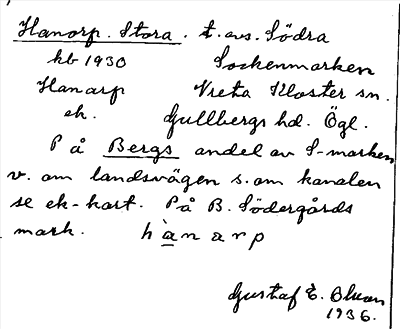 Hanorp. Stora. t. avs. Södra
kb 1930 Sockenmarken
Hanarp Vreta Kloster sn.
ek. Gullbergs hd. Ögl.
På Bergs andel av S-marken
v. om landsvägen s. om kanalen
se ek-kart. På B. Södergårds
mark. hànarp
Gustaf E.
1936.